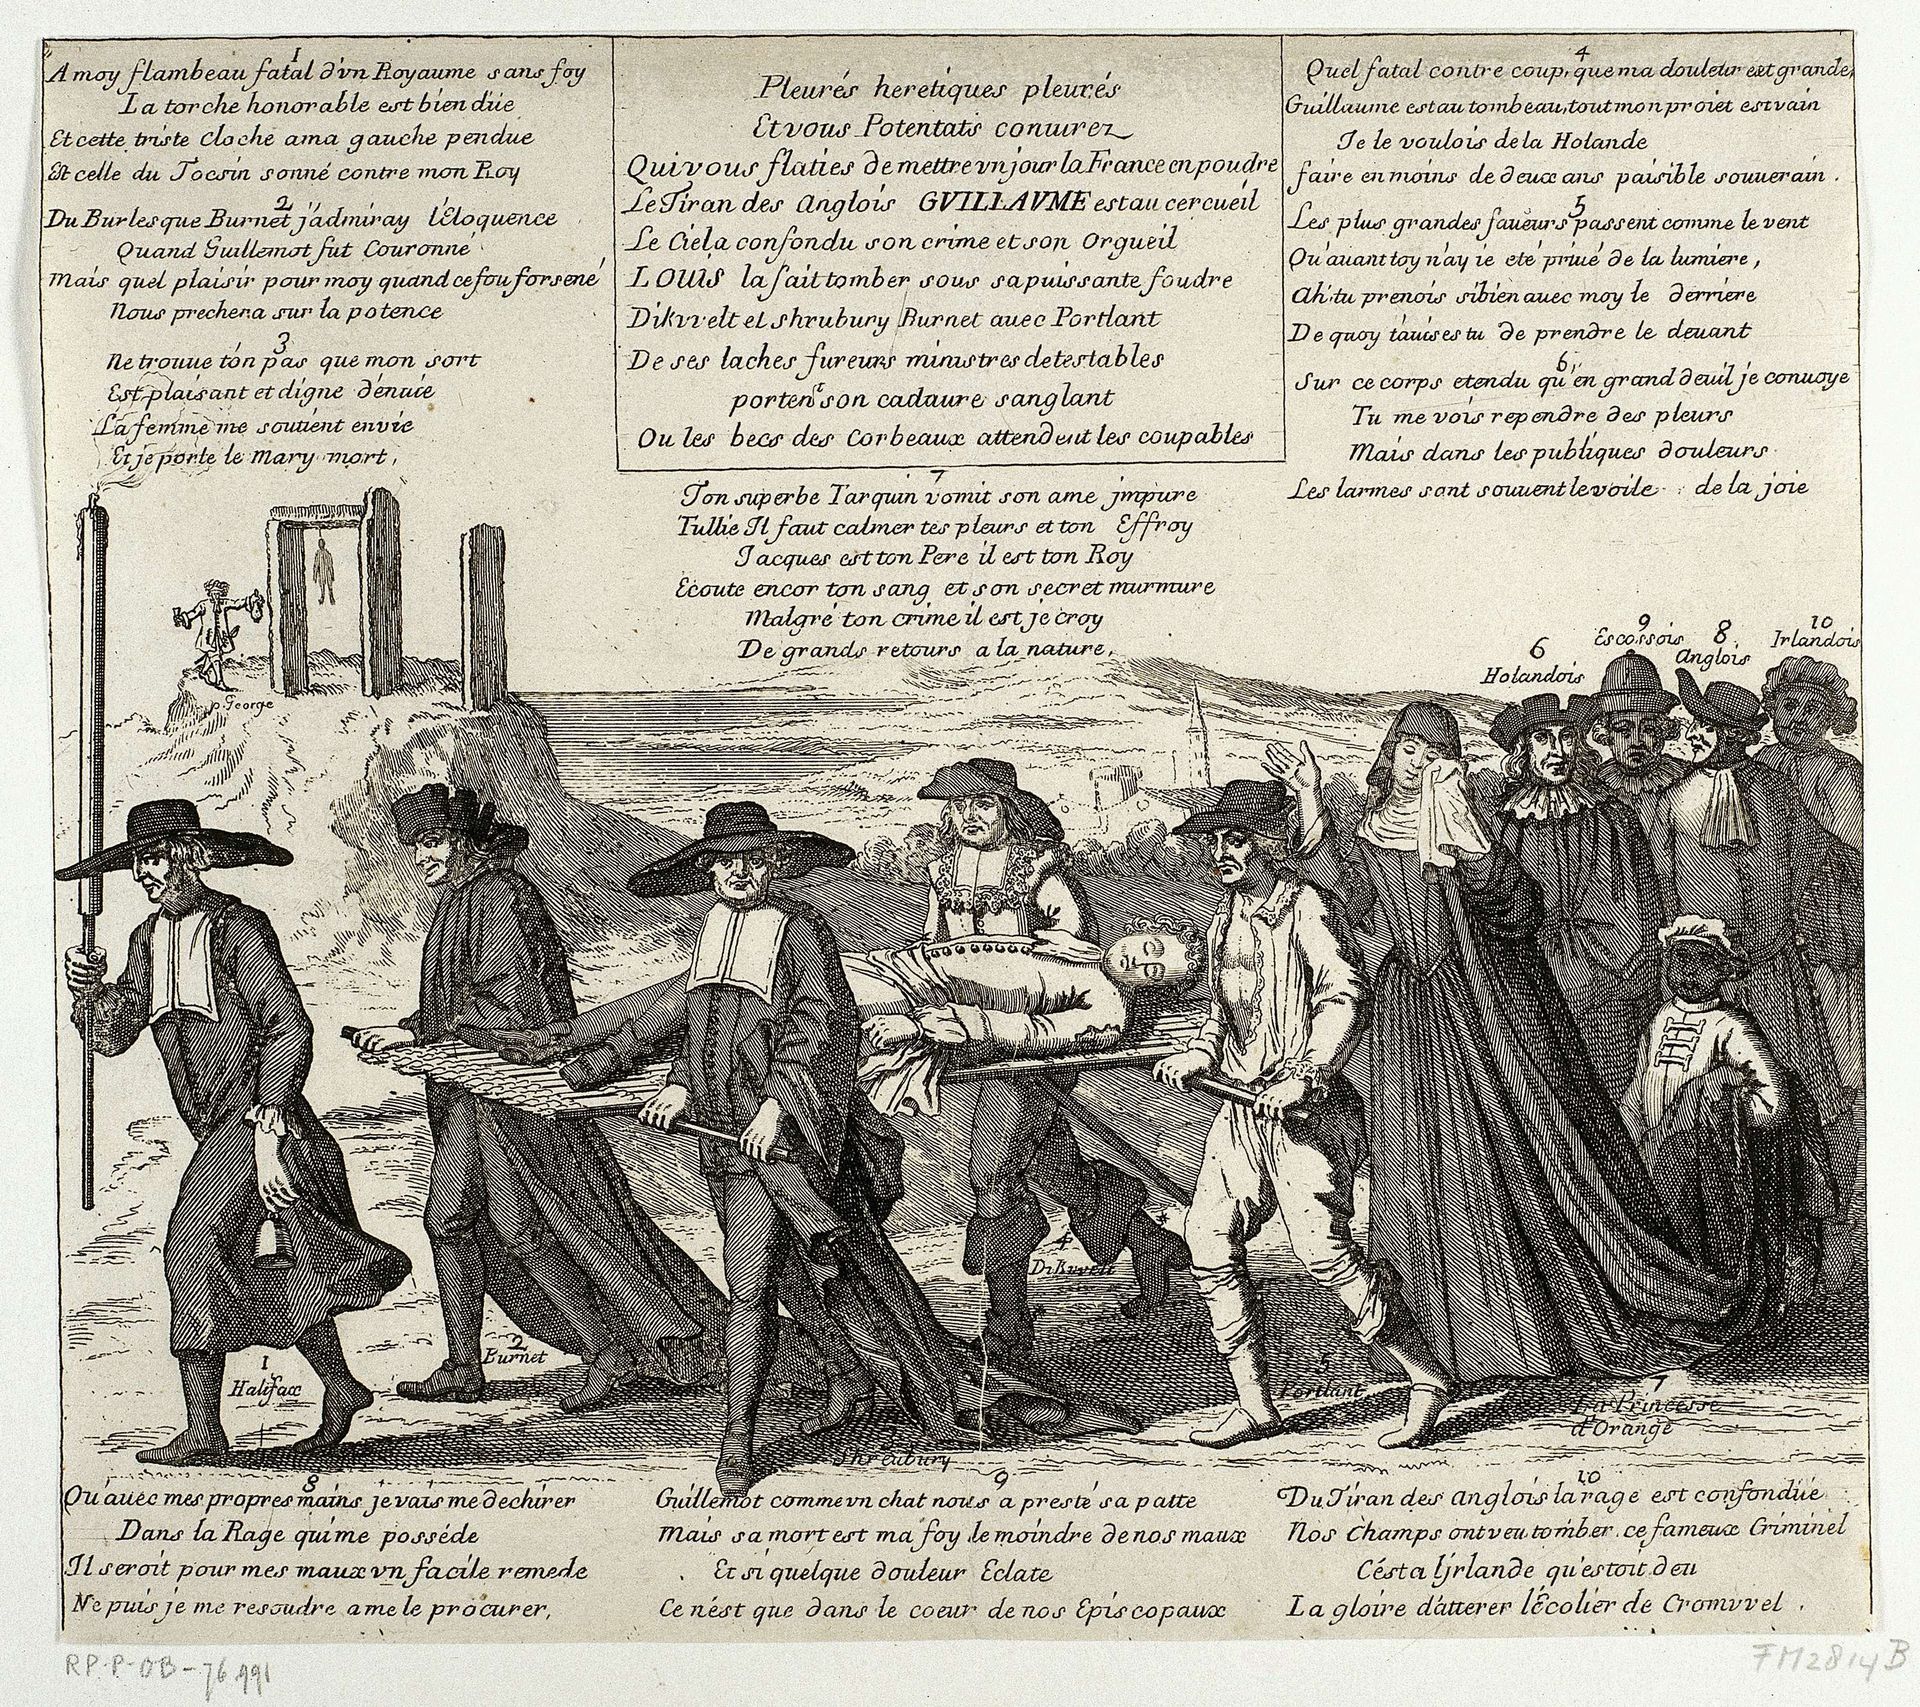 1
A moy flambeau fatal d'vn Royaume sans foy
La torche honorable est bien düe
Et cette triste Cloche a ma gauche pendue
Est celle du Tocsin sonné contre mon Roy
2
Du Burlesque Burnet j'admiray l'Eloquence
Quand Guillemot fut Couronné
Mais quel plaisir pour moy quand ce fou forsené
Nous prechera sur la potence
3
Ne trouue t'on pas que mon sort
Est plaisant et digne d'enuie
La femme me soutient en vie
Et je porte le Mary mort,
Pleurés heretiques pleurés
Et vous Potentats coniurez
Qui vous flaties de mettre vn jour la France en poudre
Le Tiran des Anglois GVILLAVME est au cercueil
Le Ciel a confondu son crime et son Orgueil
LOUIS la fait tomber sous sa puissante foudre
Dikvvelt et Shrubury Burnet auec Portlant
De ses laches fureurs ministres detestables
portent son cadaure sanglant
Ou les becs des Corbeaux attendent les coupables
4
Quel fatal contre coup, que ma douleur est grande,
Guillaume est au tombeau, tout mon proiet est vain
Je le voulois de la Holande
faire en moins de deux ans paisible souuerain.
5
Les plus grandes faueurs passent comme le vent
Qu'auant toy n'ay ie eté priué de la lumiere,
Ah tu prenois si bien auec moy le derriere
De quoy t'auises tu de prendre le deuant
6
Sur ce corps etendu qu'en grand deuil je conuoye
Tu me vois rependre des pleurs
Mais dans les publiques douleurs
Les larmes sont souuent le voile de la joie
7
Ton superbe Tarquin vomit son ame jmpure
Tullie Il faut calmer tes pleurs et ton Effroy
Jacques est ton Pere il est ton Roy
Ecoute encor ton sang et son secret murmure
Malgré ton crime il est je croy
De grands retours a la nature,
p. George
6
Holandois
9
Escossois
8
Anglois
10
Irlandois
1
Halifax
2
Burnet
3
Shreubury
4
Dikvvelt
5
Portlant
7
La Princesse
d'Orange
8
Qu'auec mes propres mains je vais me dechirer
Dans la Rage qui me posséde
Il seroit pour mes maux vn facile remede
Ne puis je me resoudre a me le procurer,
9
Guillemot comme vn chat nous a presté sa patte
Mais sa mort est ma foy le moindre de nos maux
Et si quelque douleur Eclate
Ce n'est que dans le coeur de nos Episcopaux
10
Du Tiran des Anglois la rage est confondüe
Nos Champs ont veu tomber ce fameux Criminel
C'est a l'jrlande qu'estoit deu
La gloire d'atterer l'Ecolier de Cromvvel.
RP-P-OB-76.991
FM2814B